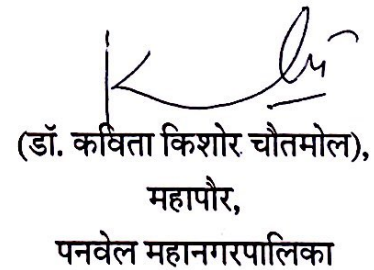 (डॉ. कविता किशोर चौतमोल),
महापौर,
पनवेल महानगरपालिका